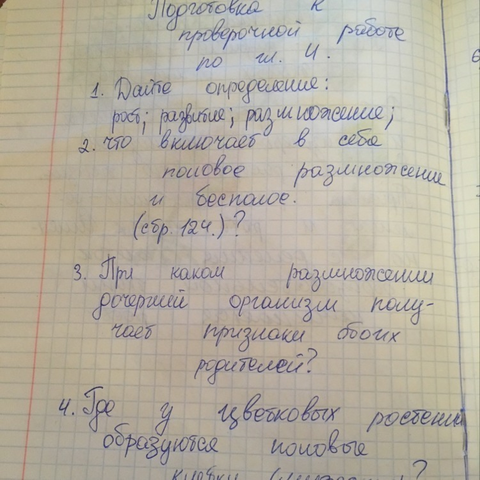 Подготовка к
проверочной работе
по гл. 4.
1. Дайте определение:
рост; развитие; размножение;
2. что включает в себя
половое размножение
и бесполое.
(стр. 124.)?
3. При каком размножении
дочерний организм полу-
чает признаки обоих
родителей?
4. Где у цветковых растений
образуются половые
клетки
?